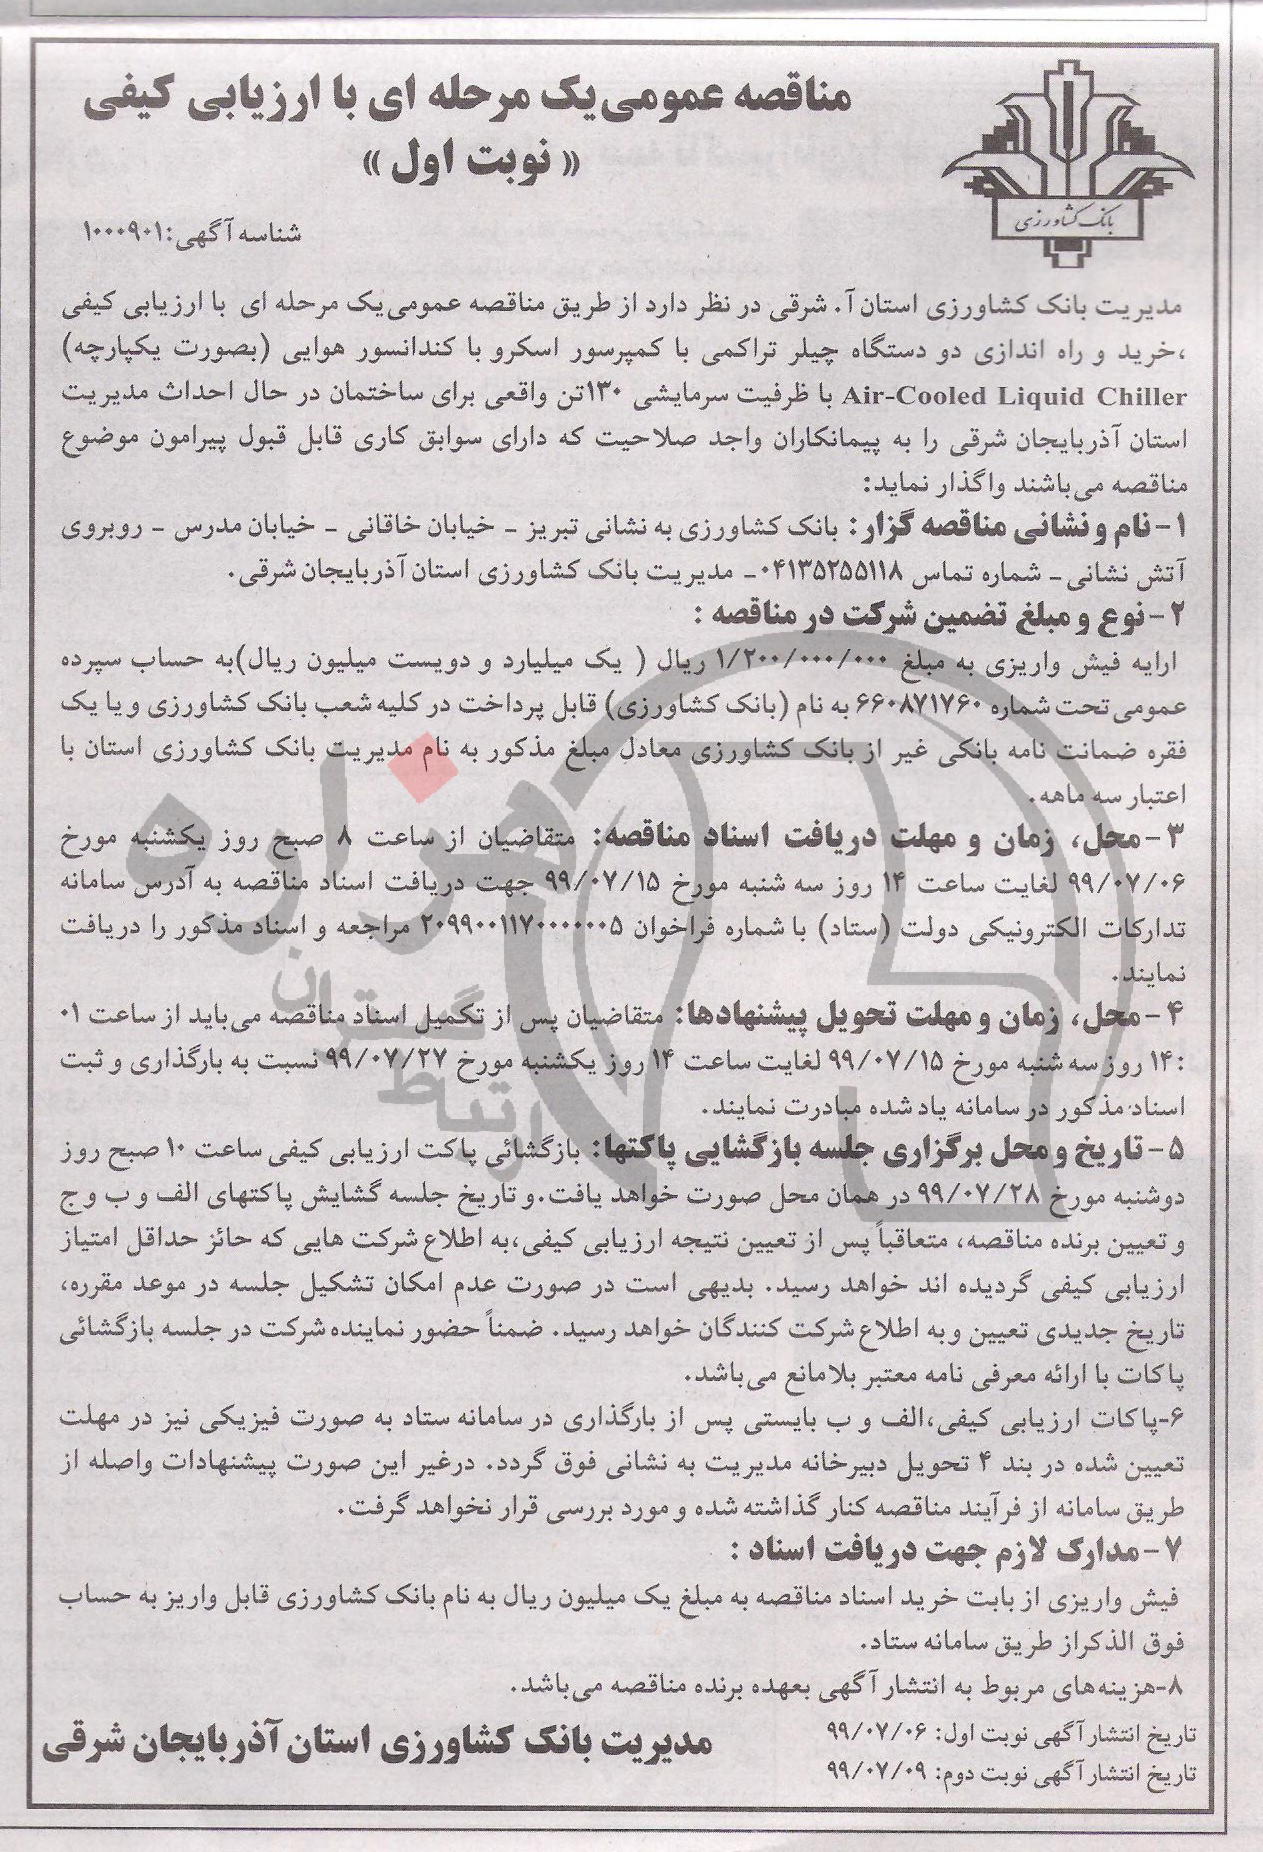 مناقصه عمومی‌یک مرحله ای با ارزیابی کیفی
« نوبت اول »
بانک کشاورزی
شناسه آگهی: ۱۰۰۰۹۰۱
مدیریت بانک کشاورزی استان آ. شرقی در نظر دارد از طریق مناقصه عمومی‌یک مرحله ای با ارزیابی کیفی
،خرید و راه اندازی دو دستگاه چیلر تراکمی با کمپرسور اسکرو با کندانسور هوایی (بصورت یکپارچه)
Air-Cooled Liquid Chiller با ظرفیت سرمایشی ۱۳۰تن واقعی برای ساختمان در حال احداث مدیریت
استان آذربایجان شرقی را به پیمانکاران واجد صلاحیت که دارای سوابق کاری قابل قبول پیرامون موضوع
مناقصه می‌باشند واگذار نماید:
۱- نام و نشانی مناقصه گزار: بانک کشاورزی به نشانی تبریز - خیابان خاقانی - خیابان مدرس - روبروی
آتش نشانی- شماره تماس ۰۴۱۳۵۲۵۵۱۱۸- مدیریت بانک کشاورزی استان آذربایجان شرقی.
۲- نوع و مبلغ تضمین شرکت در مناقصه :
ارایه فیش واریزی به مبلغ ۱/۲۰۰/۰۰۰/۰۰۰ ریال ( یک میلیارد و دویست میلیون ریال)به حساب سپرده
عمومی تحت شماره ۶۶۰۸۷۱۷۶۰ به نام (بانک کشاورزی) قابل پرداخت در کلیه شعب بانک کشاورزی و یا یک
فقره ضمانت نامه بانکی غیر از بانک کشاورزی معادل مبلغ مذکور به نام مدیریت بانک کشاورزی استان با
اعتبار سه ماهه.
۳- محل، زمان و مهلت دریافت اسناد مناقصه: متقاضیان از ساعت ۸ صبح روز یکشنبه مورخ
۹۹/۰۷/۰۶ لغایت ساعت ۱۴ روز سه شنبه مورخ ۹۹/۰۷/۱۵ جهت دریافت اسناد مناقصه به آدرس سامانه
تدارکات الکترونیکی دولت (ستاد) با شماره فراخوان ۲۰۹۹۰۰۱۱۷۰۰۰۰۰۰۵ مراجعه و اسناد مذکور را دریافت
نمایند.
۴- محل، زمان و مهلت تحویل پیشنهادها: متقاضیان پس از تکمیل اسناد مناقصه می‌باید از ساعت ۰۱
:۱۴ روز سه شنبه مورخ ۹۹/۰۷/۱۵ لغایت ساعت ۱۴ روز یکشنبه مورخ ۹۹/۰۷/۲۷ نسبت به بارگذاری و ثبت
اسناد مذکور در سامانه یاد شده مبادرت نمایند.
۵- تاریخ و محل برگزاری جلسه بازگشایی پاکتها: بازگشائی پاکت ارزیابی کیفی ساعت ۱۰ صبح روز
دوشنبه مورخ ۹۹/۰۷/۲۸ در همان محل صورت خواهد یافت.و تاریخ جلسه گشایش پاکتهای الف و ب و ج
و تعیین برنده مناقصه، متعاقباً پس از تعیین نتیجه ارزیابی کیفی،به اطلاع شرکت هایی که حائز حداقل امتیاز
ارزیابی کیفی گردیده اند خواهد رسید. بدیهی است در صورت عدم امکان تشکیل جلسه در موعد مقرره،
تاریخ جدیدی تعیین وبه اطلاع شرکت کنندگان خواهد رسید. ضمناً حضور نماینده شرکت در جلسه بازگشائی
پاکات با ارائه معرفی نامه معتبر بلامانع می‌باشد.
۶-پاکات ارزیابی کیفی،الف و ب بایستی پس از بارگذاری در سامانه ستاد به صورت فیزیکی نیز در مهلت
تعیین شده در بند ۴ تحویل دبیرخانه مدیریت به نشانی فوق گردد. درغیر این صورت پیشنهادات واصله از
طریق سامانه از فرآیند مناقصه کنار گذاشته شده و مورد بررسی قرار نخواهد گرفت.
۷- مدارک لازم جهت دریافت اسناد :
فیش واریزی از بابت خرید اسناد مناقصه به مبلغ یک میلیون ریال به نام بانک کشاورزی قابل واریز به حساب
فوق الذکراز طریق سامانه ستاد.
۸-هزینه‌های مربوط به انتشار آگهی بعهده برنده مناقصه می‌باشد.
تاریخ انتشار آگهی نوبت اول: ۹۹/۰۷/۰۶
تاریخ انتشار آگهی نوبت دوم: ۹۹/۰۷/۰۹
مدیریت بانک کشاورزی استان آذربایجان شرقی
هزاره
ارتباط گستران